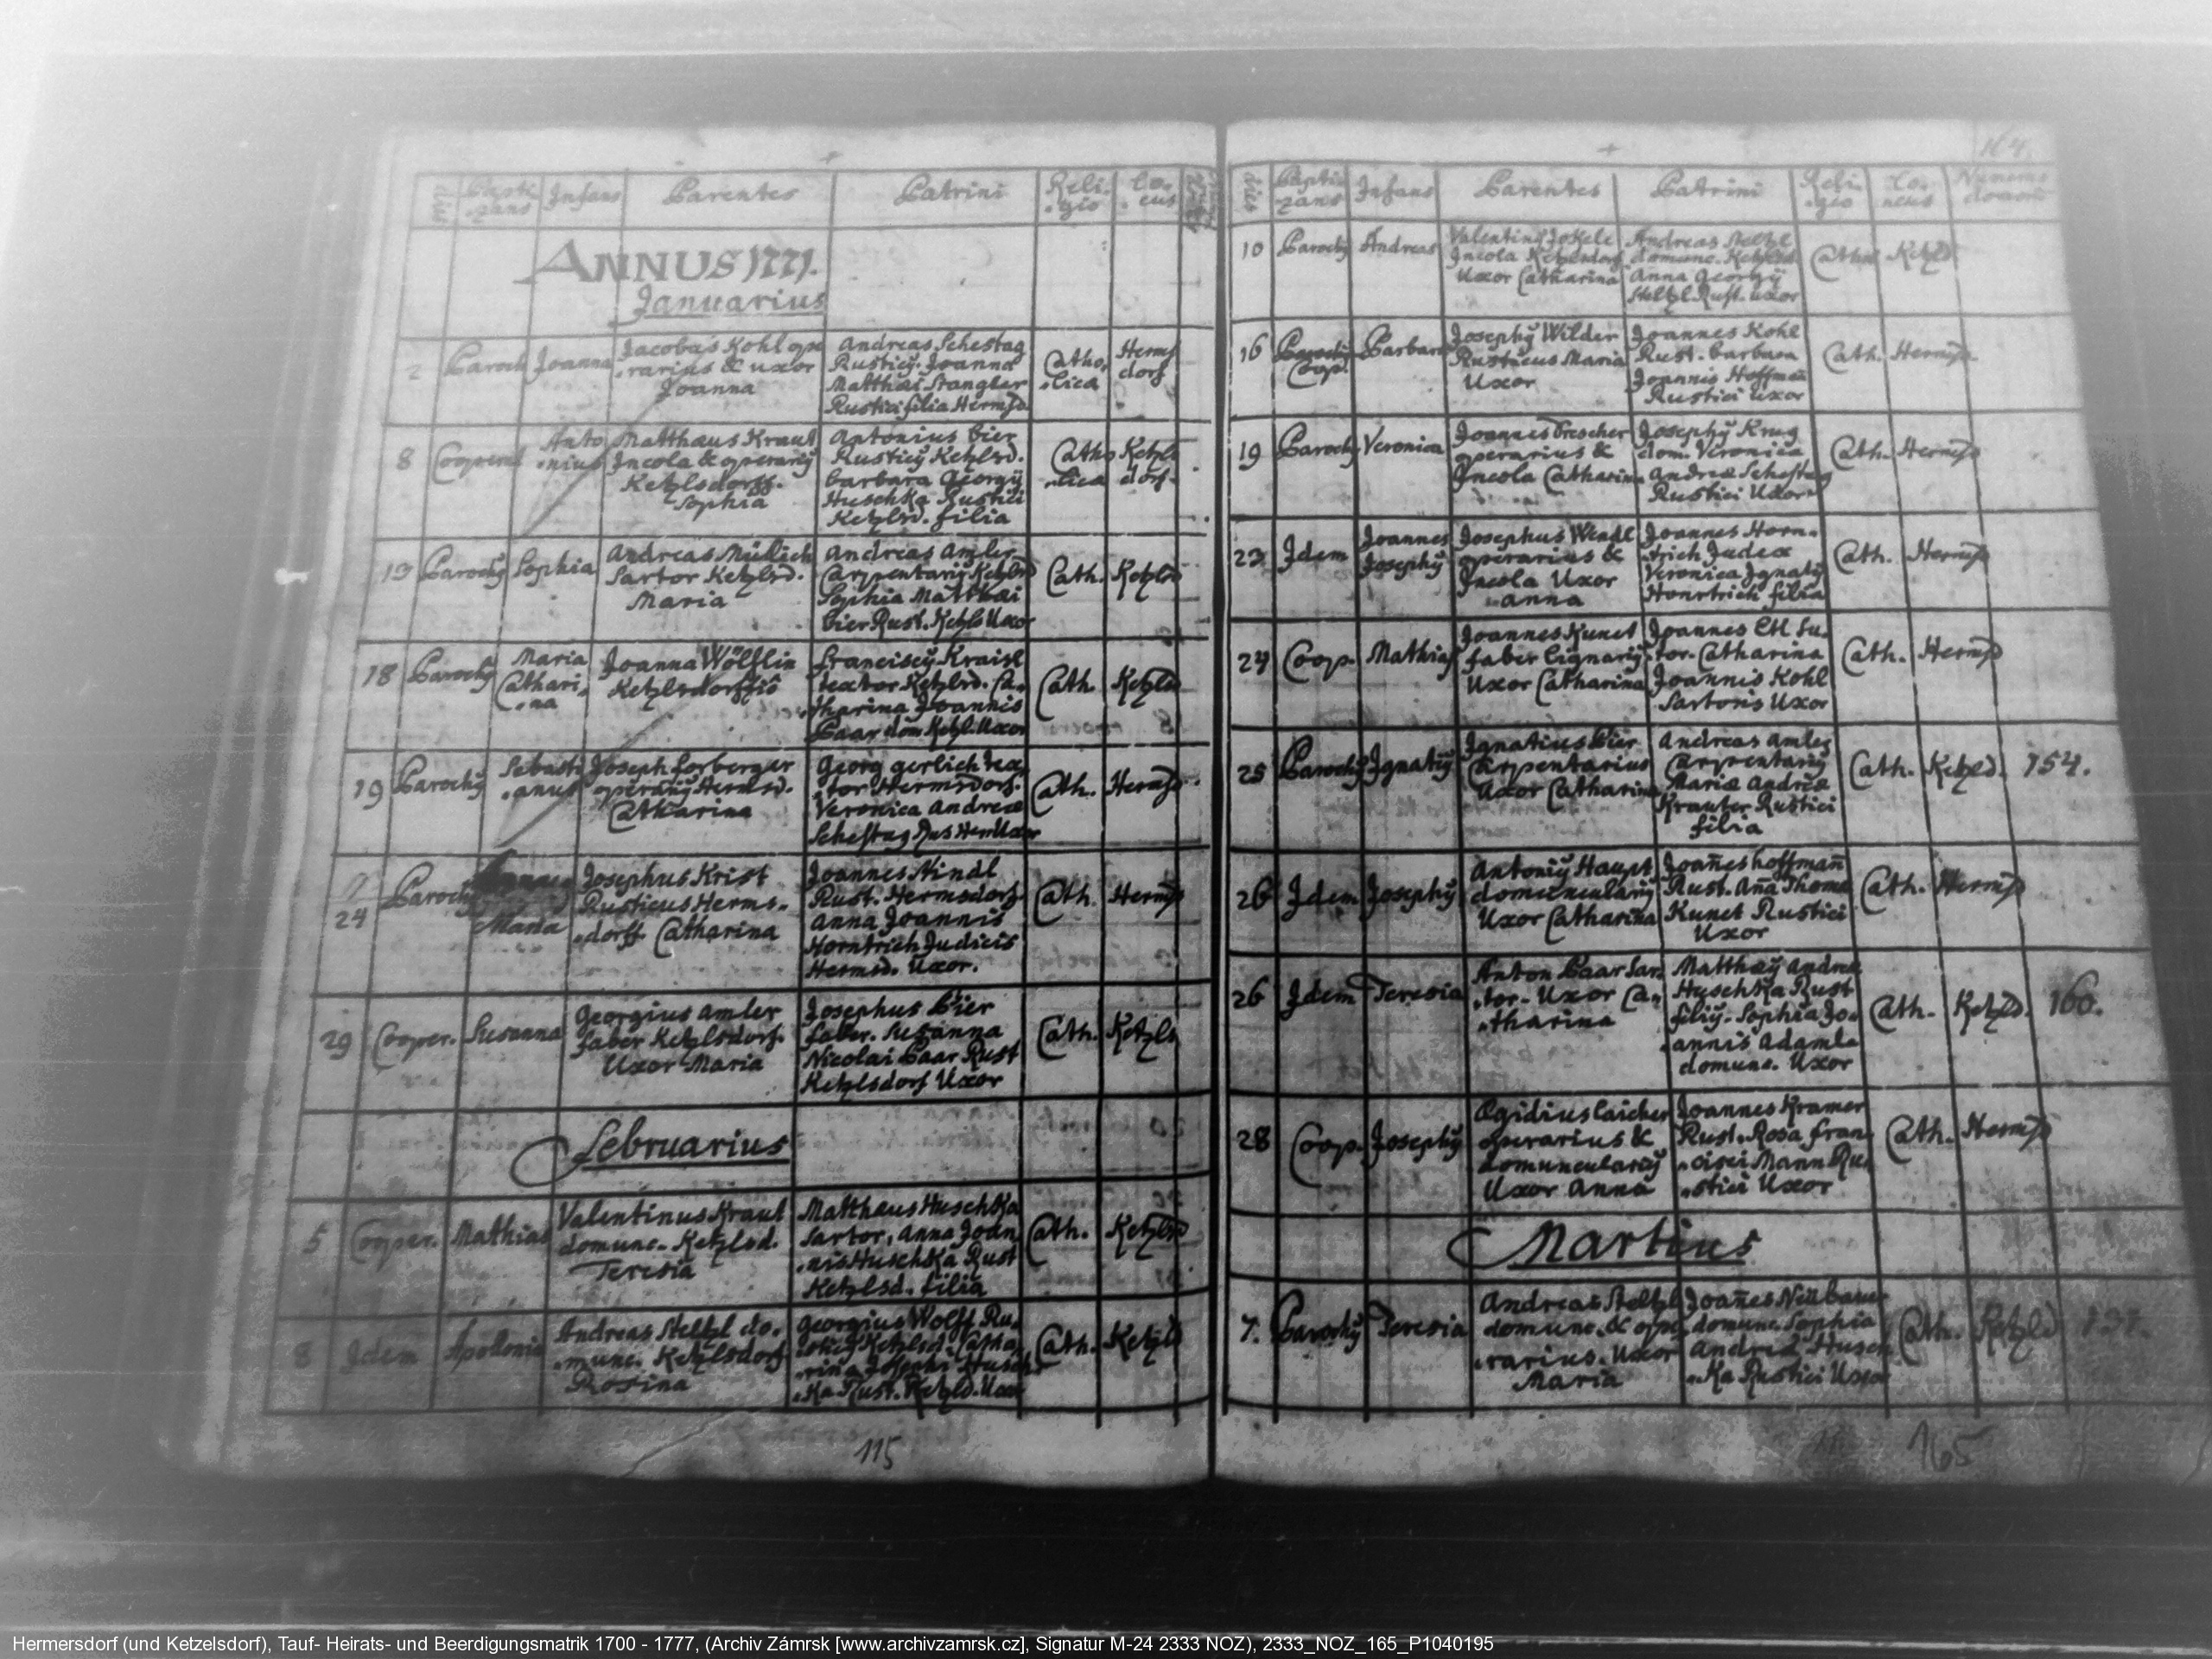 Dies Bapti-
-zans Infans Parentes Patrini Reli-
-gio Lo-
-cus
ANNUS 1771.
Januarius
2 Paroch Joanna Jacobus Kohl ope
-rarius & uxor
Joanna
Andreas Schestag
Rusticy. Joanna
Matthæi Stangler
Rustici filia Hermsd.
Catho-
-lica
Herms
dorf
8 Cooperat Anto
-nius
Matthæus Kraut
Incola & operariy
Ketzlsdorff.
Sophia
Antonius Bier
Rusticy Ketzlsd.
Barbara Georgy
Huschka Rustici
Ketzlsd. filia
Catho
-lica
Ketzls
dorf.
13 Parochy Sophia Andreas Müllich
Sartor Ketzlsd.
Maria
Andreas Amler
Carpentariy Ketzlsd
Sophia Matthæi
Bier Rust. Ketzls Uxor
Cath. Ketzlsd
18 Parochy Maria
Cathari-
-na
Joanna Wölflin
Ketzlsdorffiô
Franciscy Kraisl
textor Ketzlsd. Ca-
-tharina Joannis
Paar dom Ketzl. Uxor
Cath. Ketzlsd
19 Parochy Sebasti
-anus
Joseph Forberger
operariy Hermsd.
Catharina
Georg gerlich tex-
-tor Hermsdorf.
Veronica Andreæ
Schestag Rus Herm Uxor
Cath. Hermsd.
24 Parochy
Maria
Josephus Krist
Rusticus Herms-
-dorff. Catharina
Joannes Hindl
Rust. Hermsdorf
Anna Joannis
Horntrich Judicis
Hermsd. Uxor.
Cath. Hermsd
29 Cooper. Susanna Georgius Amler
faber Ketzlsdorf.
Uxor Maria
Josephus Bier
faber. Susanna
Nicolai Paar Rust
Ketzlsdorf Uxor
Cath. Ketzls
Februarius
5 Cooper. Mathias Valentinus Kraut
domunc. Ketzlsd.
Teresia
Matthæus Huschka
Sartor, Anna Joan
-nis Huschka Rust
Ketzlsd. filia
Cath. Ketzlsd
8 Idem Apollonia Andreas Steltzl do-
-munc. Ketzlsdorf
Rosina
Georgius Wolff Ru-
sticy Ketzlsd. Catha-
-rina Josephi Husch
-ka Rust. Ketzlsd. Uxor
Cath. Ketzls
115
164.
dies Bapti-
zans Infans Parentes Patrini Reli-
gio Lo-
-cus Numerus
domus
10 Parochy Andreas Valentiny Jokele
Incola Ketzlsdorf
Uxor Catharina
Andreas Steltzl
domunc. Ketzlsd.
Anna Georgy
Steltzl Rust. uxor
Cath. Ketzls
16 Parochy
Coop.
Barbara Josephy Wilder
Rusticus Maria
Uxor
Joannes Kohl
Rust. Barbara
Joannis Hoffman
Rustici Uxor
Cath. Hermsd.
19 Parochy Veronica Joannes Prescher
operarius &
Incola Catharina
Josephy Krug
dom. Veronica
Andreæ Schestag
Rustici Uxor
Cath. Hermsd
23 Idem Joannes
Josephy
Josephus Wendl
operarius &
Incola Uxor
Anna
Joannes Horn-
trich Judex
Veronica Ignaty
Honrtrich filia
Cath. Hermsd
24 Coop. Mathias Joannes Kunet
faber lignariy
Uxor Catharina
Joannes Ettl Su-
tor. Catharina
Joannis Kohl
Sartoris Uxor
Cath. Hermsd
25 Parochy Ignatiy Ignatius Bier
Carpentarius
Uxor Catharina
Andreas Amler
Carpentariy
Maria Andreæ
Krauter Rustici
filia
Cath. Ketzld. 154.
26 Idem Josephy Antoniy Haupt
domunculariy
Uxor Catharina
Joanes hoffman
Rust. Ana Thomæ
Kunet Rustici
Uxor
Cath. Hermsd
26 Idem Teresia Anton Paar Sar-
-tor. Uxor Ca-
-tharina
Matthæy Andreæ
Huschka Rust
filiy. Sophia Jo-
-annis Adaml
domunc. Uxor
Cath. Ketzld. 160.
28 Coop. Josephy Ægidius Caicher
operarius &
domunculariy
Uxor Anna
Joannes Kramer
Rust. Rosa Fran
-cisci Mann Ru-
-stici Uxor
Cath. Hermsd
Martius
7. Parochy Teresia Andreas Steltzl
domunc. & ope
-rarius. Uxor
Maria
Joañes Neubauer
domunc. Sophia
Andreæ Husch
-ka Rustici Uxor
Cath. Ketzld 137.
165
Hermersdorf (und Ketzelsdorf), Tauf- Heirats- und Beerdigungsmatrik 1700 - 1777, (Archiv Zámrsk [www.archivzamrsk.cz], Signatur M-24 2333 NOZ), 2333_NOZ_165_P1040195